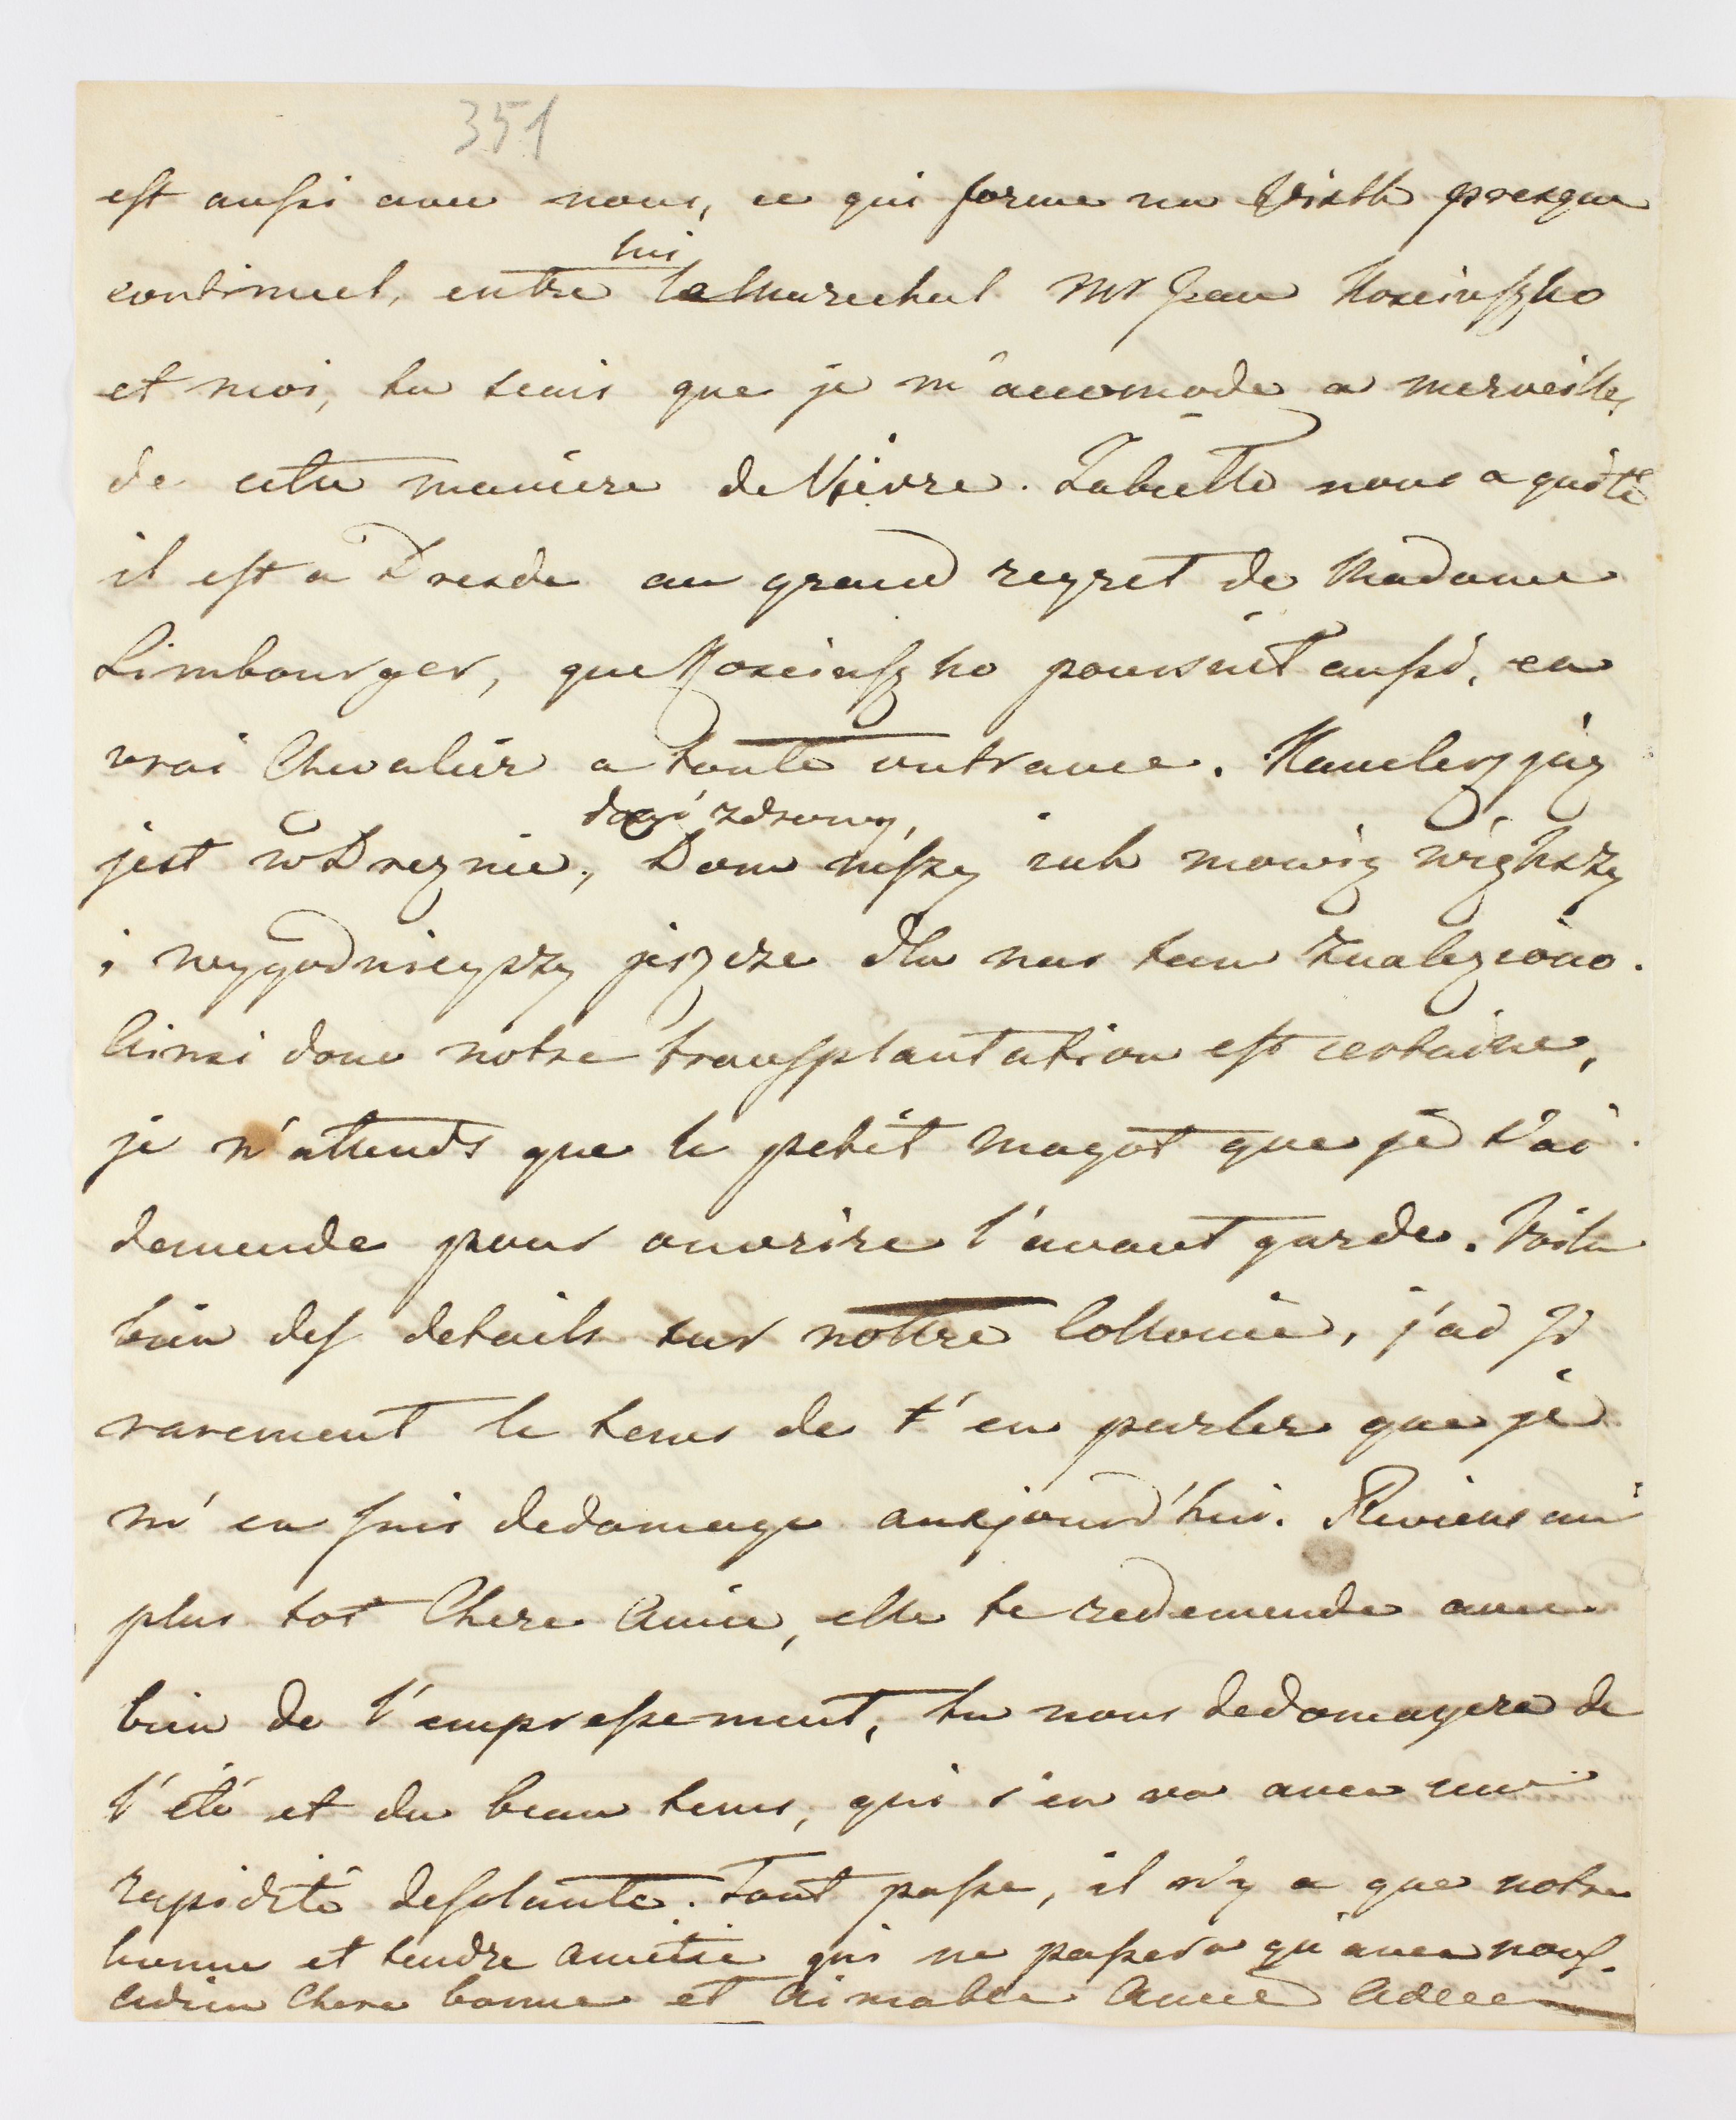 351
est aussi avec nous, ce qui forme un Wisth presque
lui
continuel, entre le Marechal Mr Jean Kosciuszko
et moi, tu scais que je m'accomode a merveille
de cette maniere de Vivre. Zabiello nous a quitté
il est a Dresde au grand regret de Madame
Limbourger, que Kosciuszko poursuit aussi, en
vrai Chevalier a toute outrance. Kanclerz juz
dosyc zdrowy,
jest w Dreznie, Dom naszy iak mowią większy
i wygodnieyszy jeszcze dla nas tam znaleziono.
Ainsi donc notre transplantation est certaine,
je n'attends que le petit magot que je t'ai
demende pour ouvrire l'avant garde. Voila
bien des details sur nottre Collonie, j'ai si
rarement le tems de t'en parler que je
m'en suis dedomage aujourd'hui. Reviens au
plus tot Chere Amie, elle te redemende avec
bien de l'empressement, tu nous dedomagera de
l'été et du beau tems, qui s'en va avec une
rapidité desolante. Tout passe, il n'y a que notre
bonne et tendre amitie qui ne passera qu'avec nous.
Adieu Chere bonne et Aimable Amie